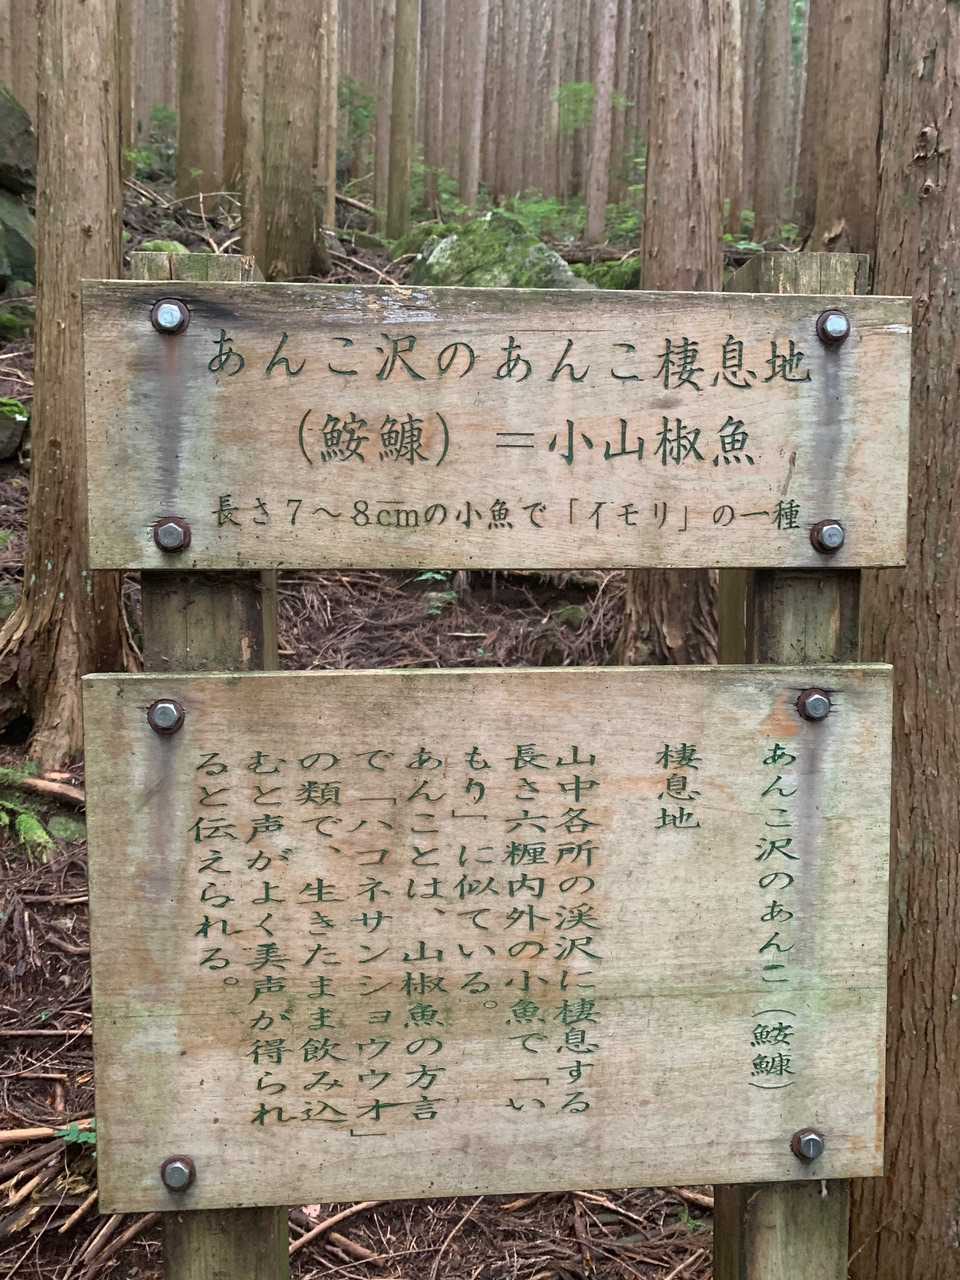 あんこ沢のあんこ棲息地
（鮟鱇）＝小山椒魚
長さ7〜8cmの小魚で「イモリ」の一種
あんこ沢のあんこ（鮟鱇）
棲息地
山中各所の渓沢に棲息する
長さ六糎内外の小魚で「い
もり」に似ている。
あんことは、山椒魚の方言
で「ハコネサンショウウオ」
の類で、生きたまま飲み込
むと声がよく美声が得られ
ると伝えられる。